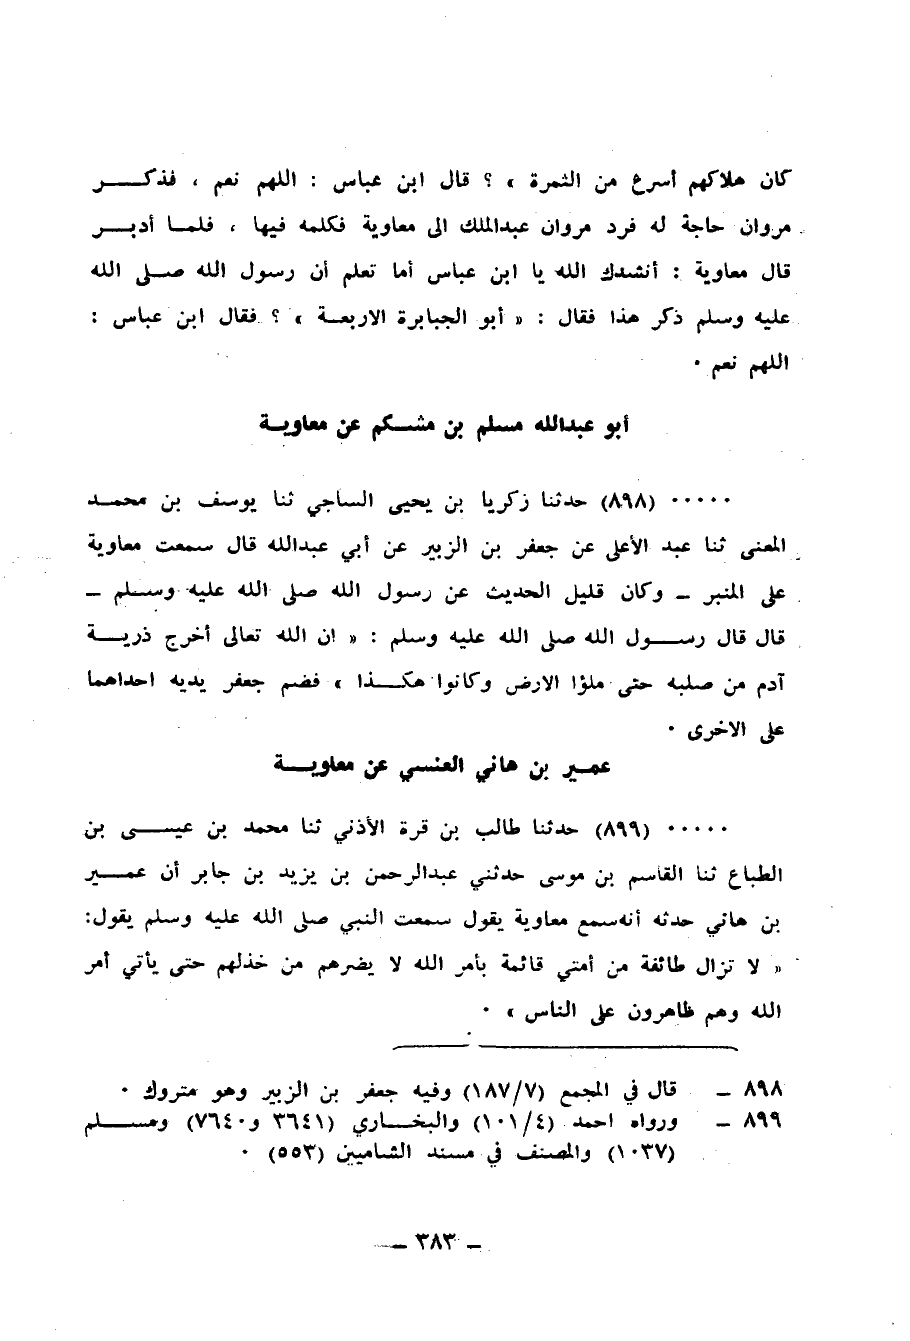 كان هلاكهم أسرع من الثمرة » ؟ قال ابن عباس : اللهم نعم ، فذكـــر
مروان حاجة له فرد مروان عبدالملك الى معاوية فكلمه فيها ، فلمـا أدبـــر
قال معاوية : أنشدك الله يا ابن عباس أما تعلم أن رسول الله صـلى الله
عليه وسلم ذكر هذا فقال : « أبو الجبابرة الاربعـة » ؟ فقال ابن عباس :
اللهم نعم ٠
أبو عبدالله مسلم بن مشـكم عن معاويـة
٠٠٠٠٠ (٨٩٨) حدثنا زكريا بن يحيى الساجي ثنا يوسف بن محمـد
المعنى ثنا عبد الأعلى عن جعفر بن الزبير عن أبي عبدالله قال سمعت معاوية
على المنبر ــ وكان قليل الحديث عن رسول الله صلى الله عليه وسـلم ــ
قال قال رســول الله صلى الله عليه وسلم : « ان الله تعالى أخرج ذريـــة
آدم من صلبه حتى ملؤا الارض وكانوا هكــذا » فضم جعفر يديه احداهما
على الاخرى ٠
عمـير بن هاني العنسي عن معاويـــة
٠٠٠٠٠ (٨٩٩) حدثنا طالب بن قرة الأذني ثنا محمد بن عيـــسى بن
الطباع ثنا القاسم بن موسى حدثني عبدالرحمن بن يزيد بن جابر أن عمـــير
بن هاني حدثه أنه سمع معاوية يقول سمعت النبي صلى الله عليه وسلم يقول:
« لا تزال طائفة من أمتي قائمة بأمر الله لا يضرهم من خذلهم حتى يأتي أمر
الله وهم ظاهرون على الناس » ٠
٨٩٨ ــ قال في المجمع (١٨٧/٧) وفيه جعفر بن الزبير وهو متروك ٠
٨٩٩ ــ ورواه احمد (١٠١/٤) والبخـــاري (٣٦٤١ و٧٦٤٠) ومســـلم
(١٠٣٧) والمصنف في مسند الشاميين (٥٥٣) ٠
ــ ٣٨٣ ــ